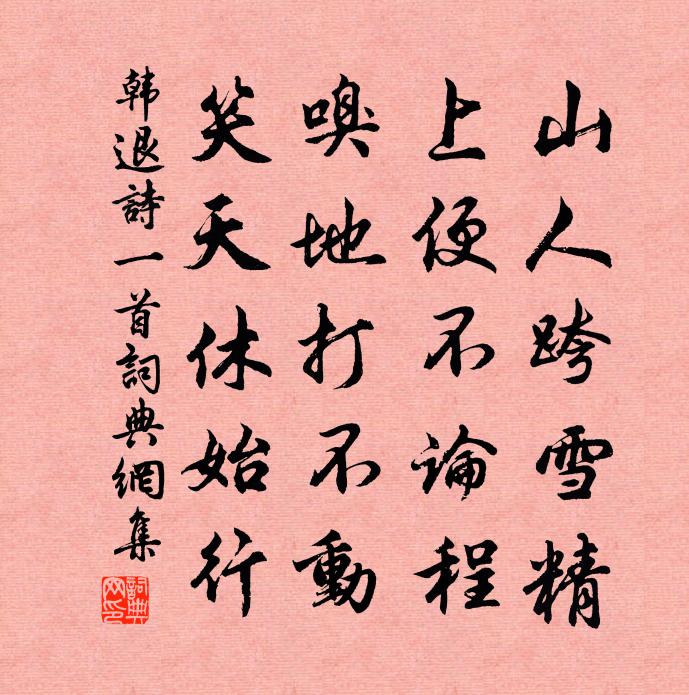 山人跨雪精
上便不論程
嗅地打不動
笑天休始行
韩退詩一首詞典網集
詞典网印